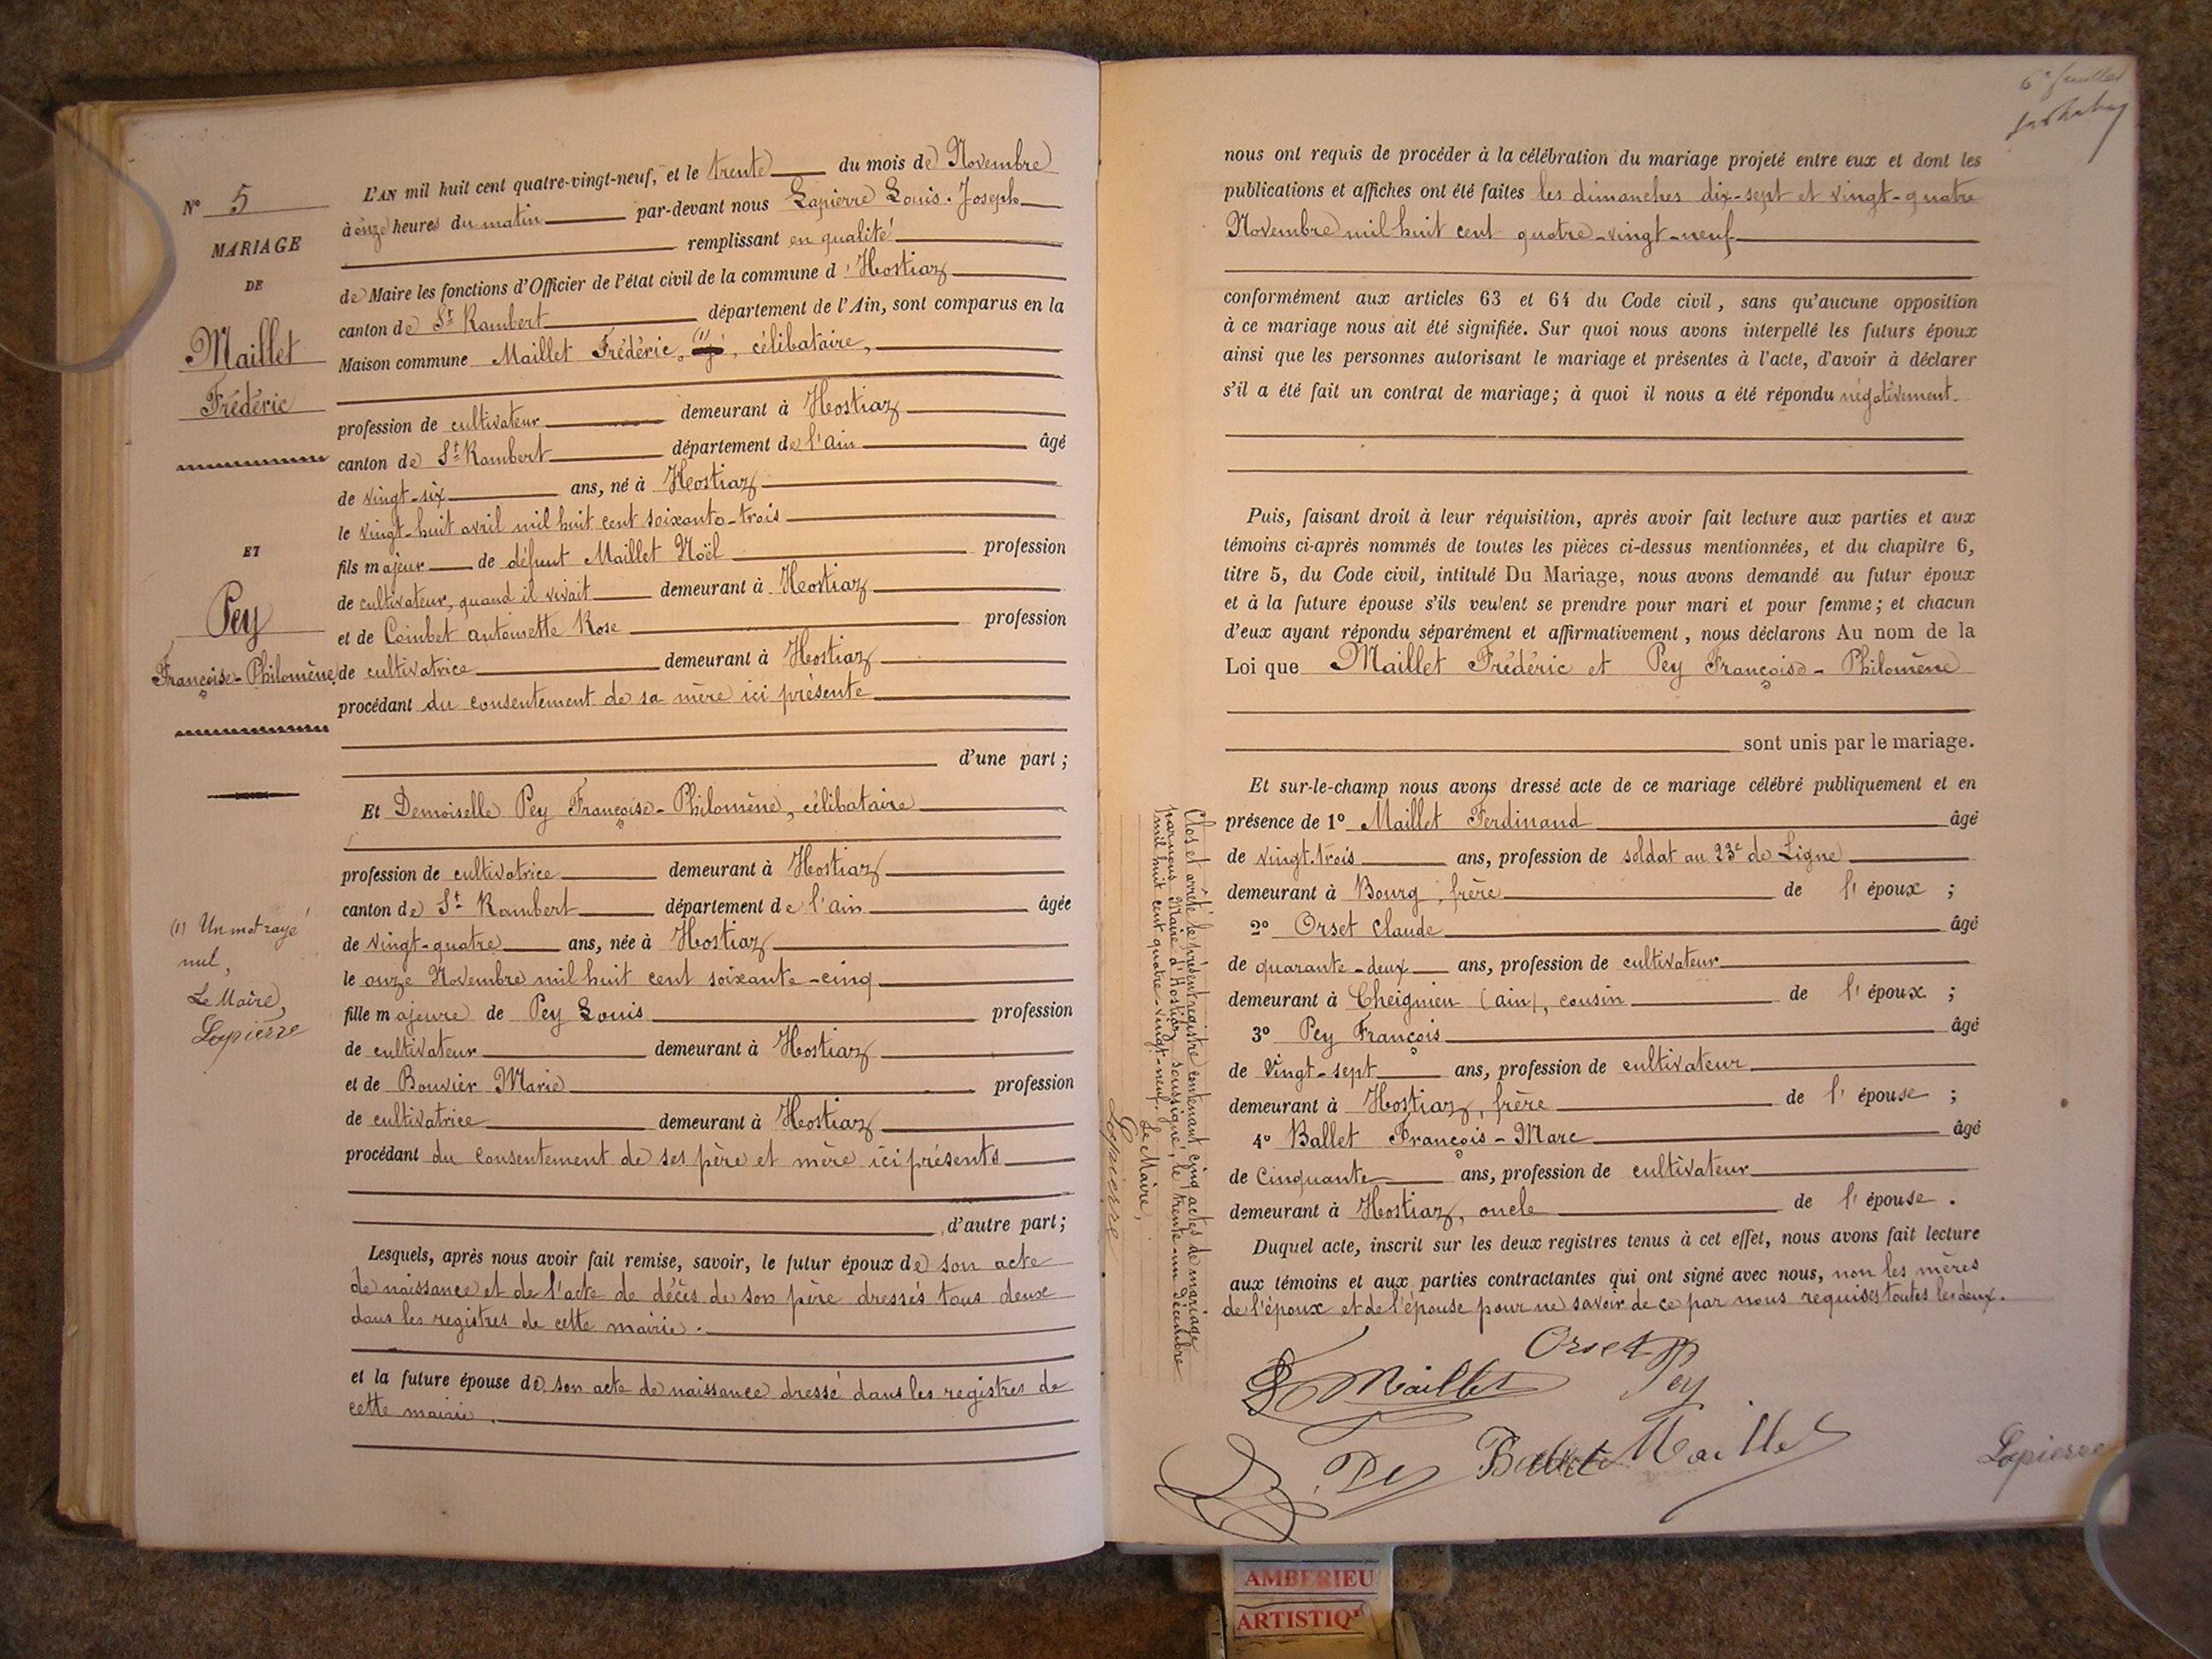 N° 5
MARIAGE
DE
Maillet
Frédéric
ET
Pey
Françoise-Philomène
(1) Un mot rayé
nul,
Le Maire,
Lapierre
L'AN mil huit cent quatre-vingt-neuf, et le trente du mois de Novembre
à onze heures du matin par-devant nous Lapierre Louis-Joseph
remplissant en qualité
de Maire les fonctions d'Officier de l'état civil de la commune d'Hostiaz
canton de St Rambert département de l'Ain, sont comparus en la
Maison commune Maillet Frédéric, (1), célibataire,
profession de cultivateur demeurant à Hostiaz
canton de St Rambert département de l'ain âgé
de vingt-six ans, né à Hostiaz
le vingt-huit avril mil huit cent soixante-trois
fils majeur de défunt Maillet Noël profession
de cultivateur, quand il vivait demeurant à Hostiaz
et de Coinbet antoinette Rose profession
de cultivatrice demeurant à Hostiaz
procédant du consentement de sa mère ici présente
d'une part ;
Et Demoiselle Pey Françoise-Philomène, célibataire
profession de cultivatrice demeurant à Hostiaz
canton de St Rambert département de l'ain âgée
de vingt-quatre ans, née à Hostiaz
le onze Novembre mil huit cent soixante-cinq
fille majeure de Pey Louis profession
de cultivateur demeurant à Hostiaz
et de Bouvier Marie profession
de cultivatrice demeurant à Hostiaz
procédant du consentement de ses père et mère ici présents
d'autre part ;
Lesquels, après nous avoir fait remise, savoir, le futur époux de son acte
de naissance et de l'acte de décès de son père dressés tous deux
dans les registres de cette mairie.
et la future épouse de son acte de naissance dressé dans les registres de
cette mairie.
6e feuillet
nous ont requis de procéder à la célébration du mariage projeté entre eux et dont les
publications et affiches ont été faites les dimanches dix-sept et vingt-quatre
Novembre mil huit cent quatre-vingt-neuf
conformément aux articles 63 et 64 du Code civil, sans qu'aucune opposition
à ce mariage nous ait été signifiée. Sur quoi nous avons interpellé les futurs époux
ainsi que les personnes autorisant le mariage et présentes à l'acte, d'avoir à déclarer
s'il a été fait un contrat de mariage ; à quoi il nous a été répondu négativement.
Puis, faisant droit à leur réquisition, après avoir fait lecture aux parties et aux
témoins ci-après nommés de toutes les pièces ci-dessus mentionnées, et du chapitre 6,
titre 5, du Code civil, intitulé Du Mariage, nous avons demandé au futur époux
et à la future épouse s'ils veulent se prendre pour mari et pour femme ; et chacun
d'eux ayant répondu séparément et affirmativement, nous déclarons Au nom de la
Loi que Maillet Frédéric et Pey Françoise-Philomène
sont unis par le mariage.
Et sur-le-champ nous avons dressé acte de ce mariage célébré publiquement et en
présence de 1° Maillet Ferdinand âgé
de vingt-trois ans, profession de soldat au 23e de Ligne
demeurant à Bourg, frère de l'époux ;
2° Orset Claude âgé
de quarante-deux ans, profession de cultivateur
demeurant à Cheignieu (ain), cousin de l'époux ;
3° Pey François âgé
de vingt-sept ans, profession de cultivateur
demeurant à Hostiaz, frère de l'épouse ;
4° Ballet François-Marc âgé
de Cinquante ans, profession de cultivateur
demeurant à Hostiaz, oncle de l'épouse.
Duquel acte, inscrit sur les deux registres tenus à cet effet, nous avons fait lecture
aux témoins et aux parties contractantes qui ont signé avec nous, non les mères
de l'époux et de l'épouse pour ne savoir de ce par nous requises toutes les deux.
Clos et arrêté le présent registre contenant cinq actes de mariage
par nous Maire d'Hostiaz soussigné, le trente-un décembre
mil huit cent quatre-vingt-neuf.
Le Maire,
Lapierre
Orset
Maillet
Pey
Pey
Maillet
Lapierre
AMBERIEU
ARTISTIQ